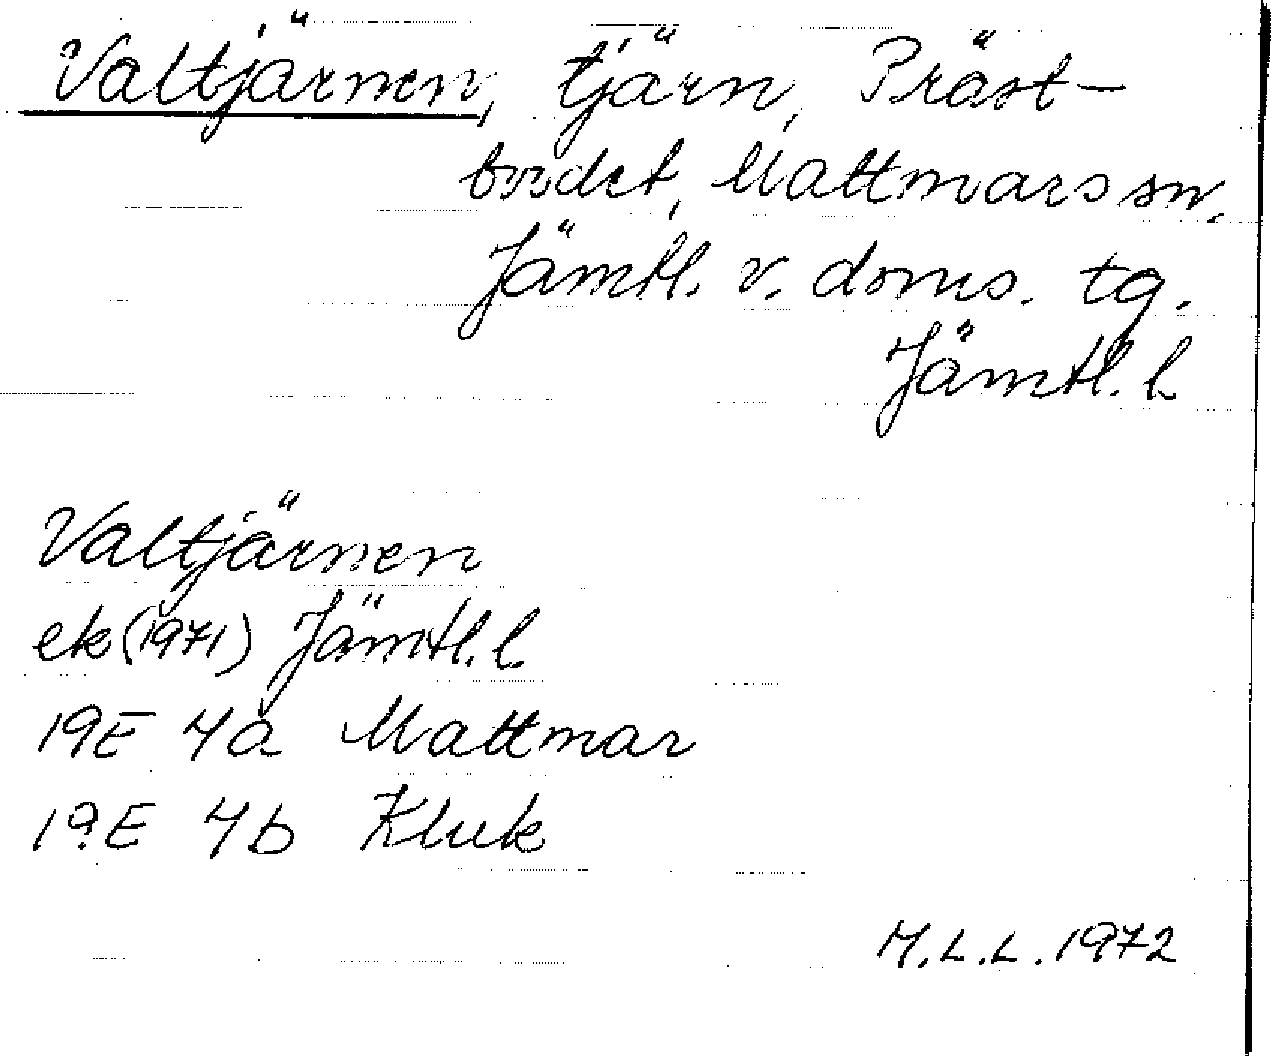 Valtjärnen, tjärn, Präst-
bordet, Mattmars sn,
Jämtl. v. doms. tg.
Jämtl. l.
Valtjärnen
ek (1971) Jämtl. l.
19E 4a Mattmar
19E 4b Kluk
M.L.L. 1972